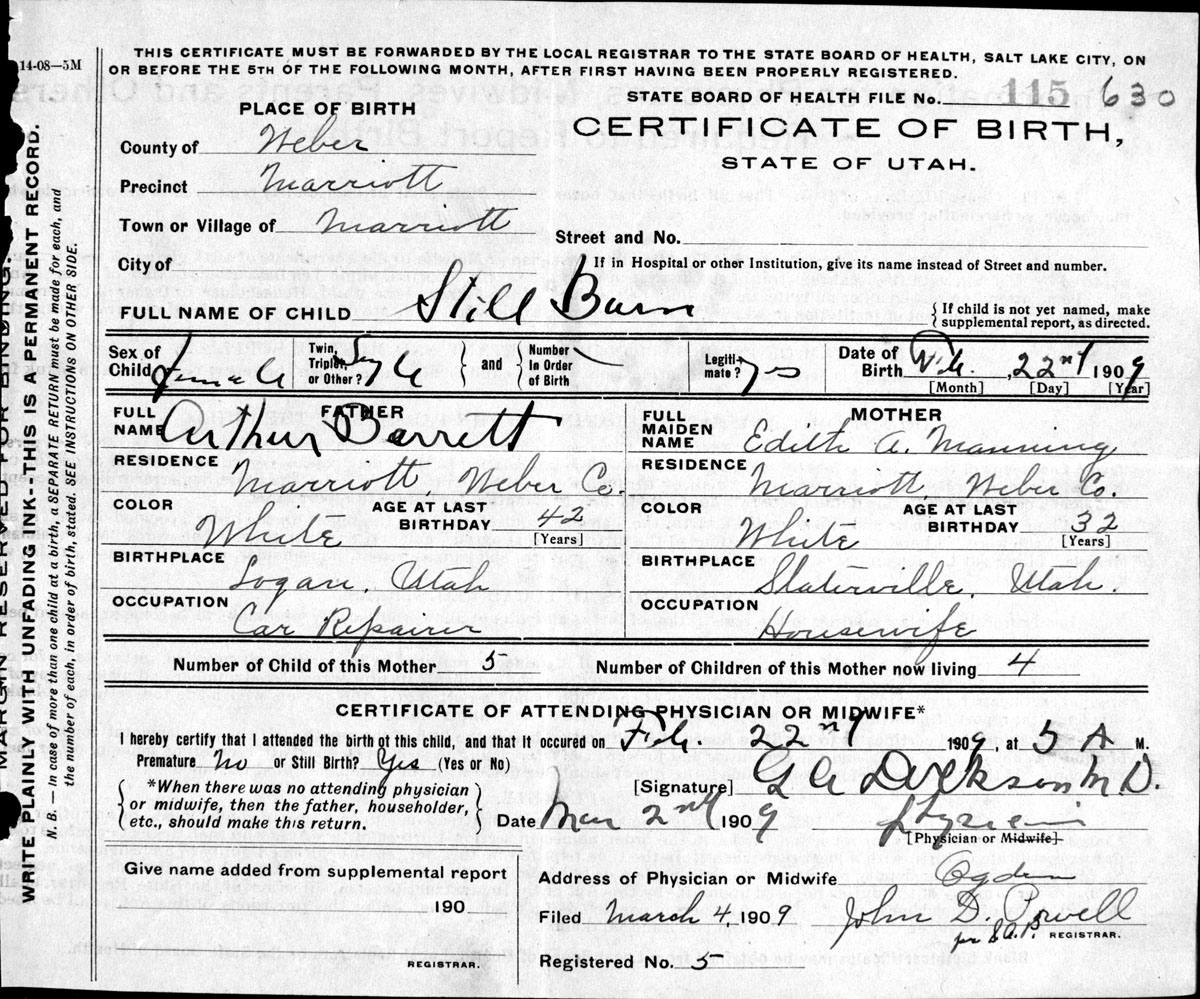 14-08—5M
THIS CERTIFICATE MUST BE FORWARDED BY THE LOCAL REGISTRAR TO THE STATE BOARD OF HEALTH, SALT LAKE CITY, ON
OR BEFORE THE 5TH OF THE FOLLOWING MONTH, AFTER FIRST HAVING BEEN PROPERLY REGISTERED.
STATE BOARD OF HEALTH FILE No. 115 630
CERTIFICATE OF BIRTH,
STATE OF UTAH.
PLACE OF BIRTH
County of Weber
Precinct Marriott
Town or Village of Marriott
Street and No.
City of
If in Hospital or other Institution, give its name instead of Street and number.
FULL NAME OF CHILD Still Born
{ If child is not yet named, make
supplemental report, as directed.
Sex of Child Female
Twin, Triplet, or Other?
and
Number in Order of Birth
Legitimate? yes
Date of Birth Feb. 22nd 1909
[Month] [Day] [Year]
FATHER
FULL NAME Arthur Barrett
RESIDENCE Marriott, Weber Co.
COLOR White
AGE AT LAST BIRTHDAY 42
[Years]
BIRTHPLACE Logan, Utah
OCCUPATION Car Repairer
MOTHER
FULL MAIDEN NAME Edith A. Manning
RESIDENCE Marriott Weber Co.
COLOR White
AGE AT LAST BIRTHDAY 32
[Years]
BIRTHPLACE Slaterville, Utah.
OCCUPATION Housewife
Number of Child of this Mother 5 Number of Children of this Mother now living 4
CERTIFICATE OF ATTENDING PHYSICIAN OR MIDWIFE*
I hereby certify that I attended the birth of this child, and that it occured on Feb. 22nd 1909, at 5 A M.
Premature No or Still Birth? Yes (Yes or No)
*When there was no attending physician
or midwife, then the father, householder,
etc., should make this return.
[Signature] M D.
Date Mar 2nd 1909 Physician
[Physician or Midwife]
Give name added from supplemental report
190
REGISTRAR.
Address of Physician or Midwife Ogden
Filed March 4, 1909 John D. Powell
per REGISTRAR.
Registered No. 5
MARGIN RESERVED FOR BINDING.
WRITE PLAINLY WITH UNFADING INK—THIS IS A PERMANENT RECORD.
N. B.—In case of more than one child at a birth, a SEPARATE RETURN must be made for each, and
the number of each, in order of birth, stated. SEE INSTRUCTIONS ON OTHER SIDE.